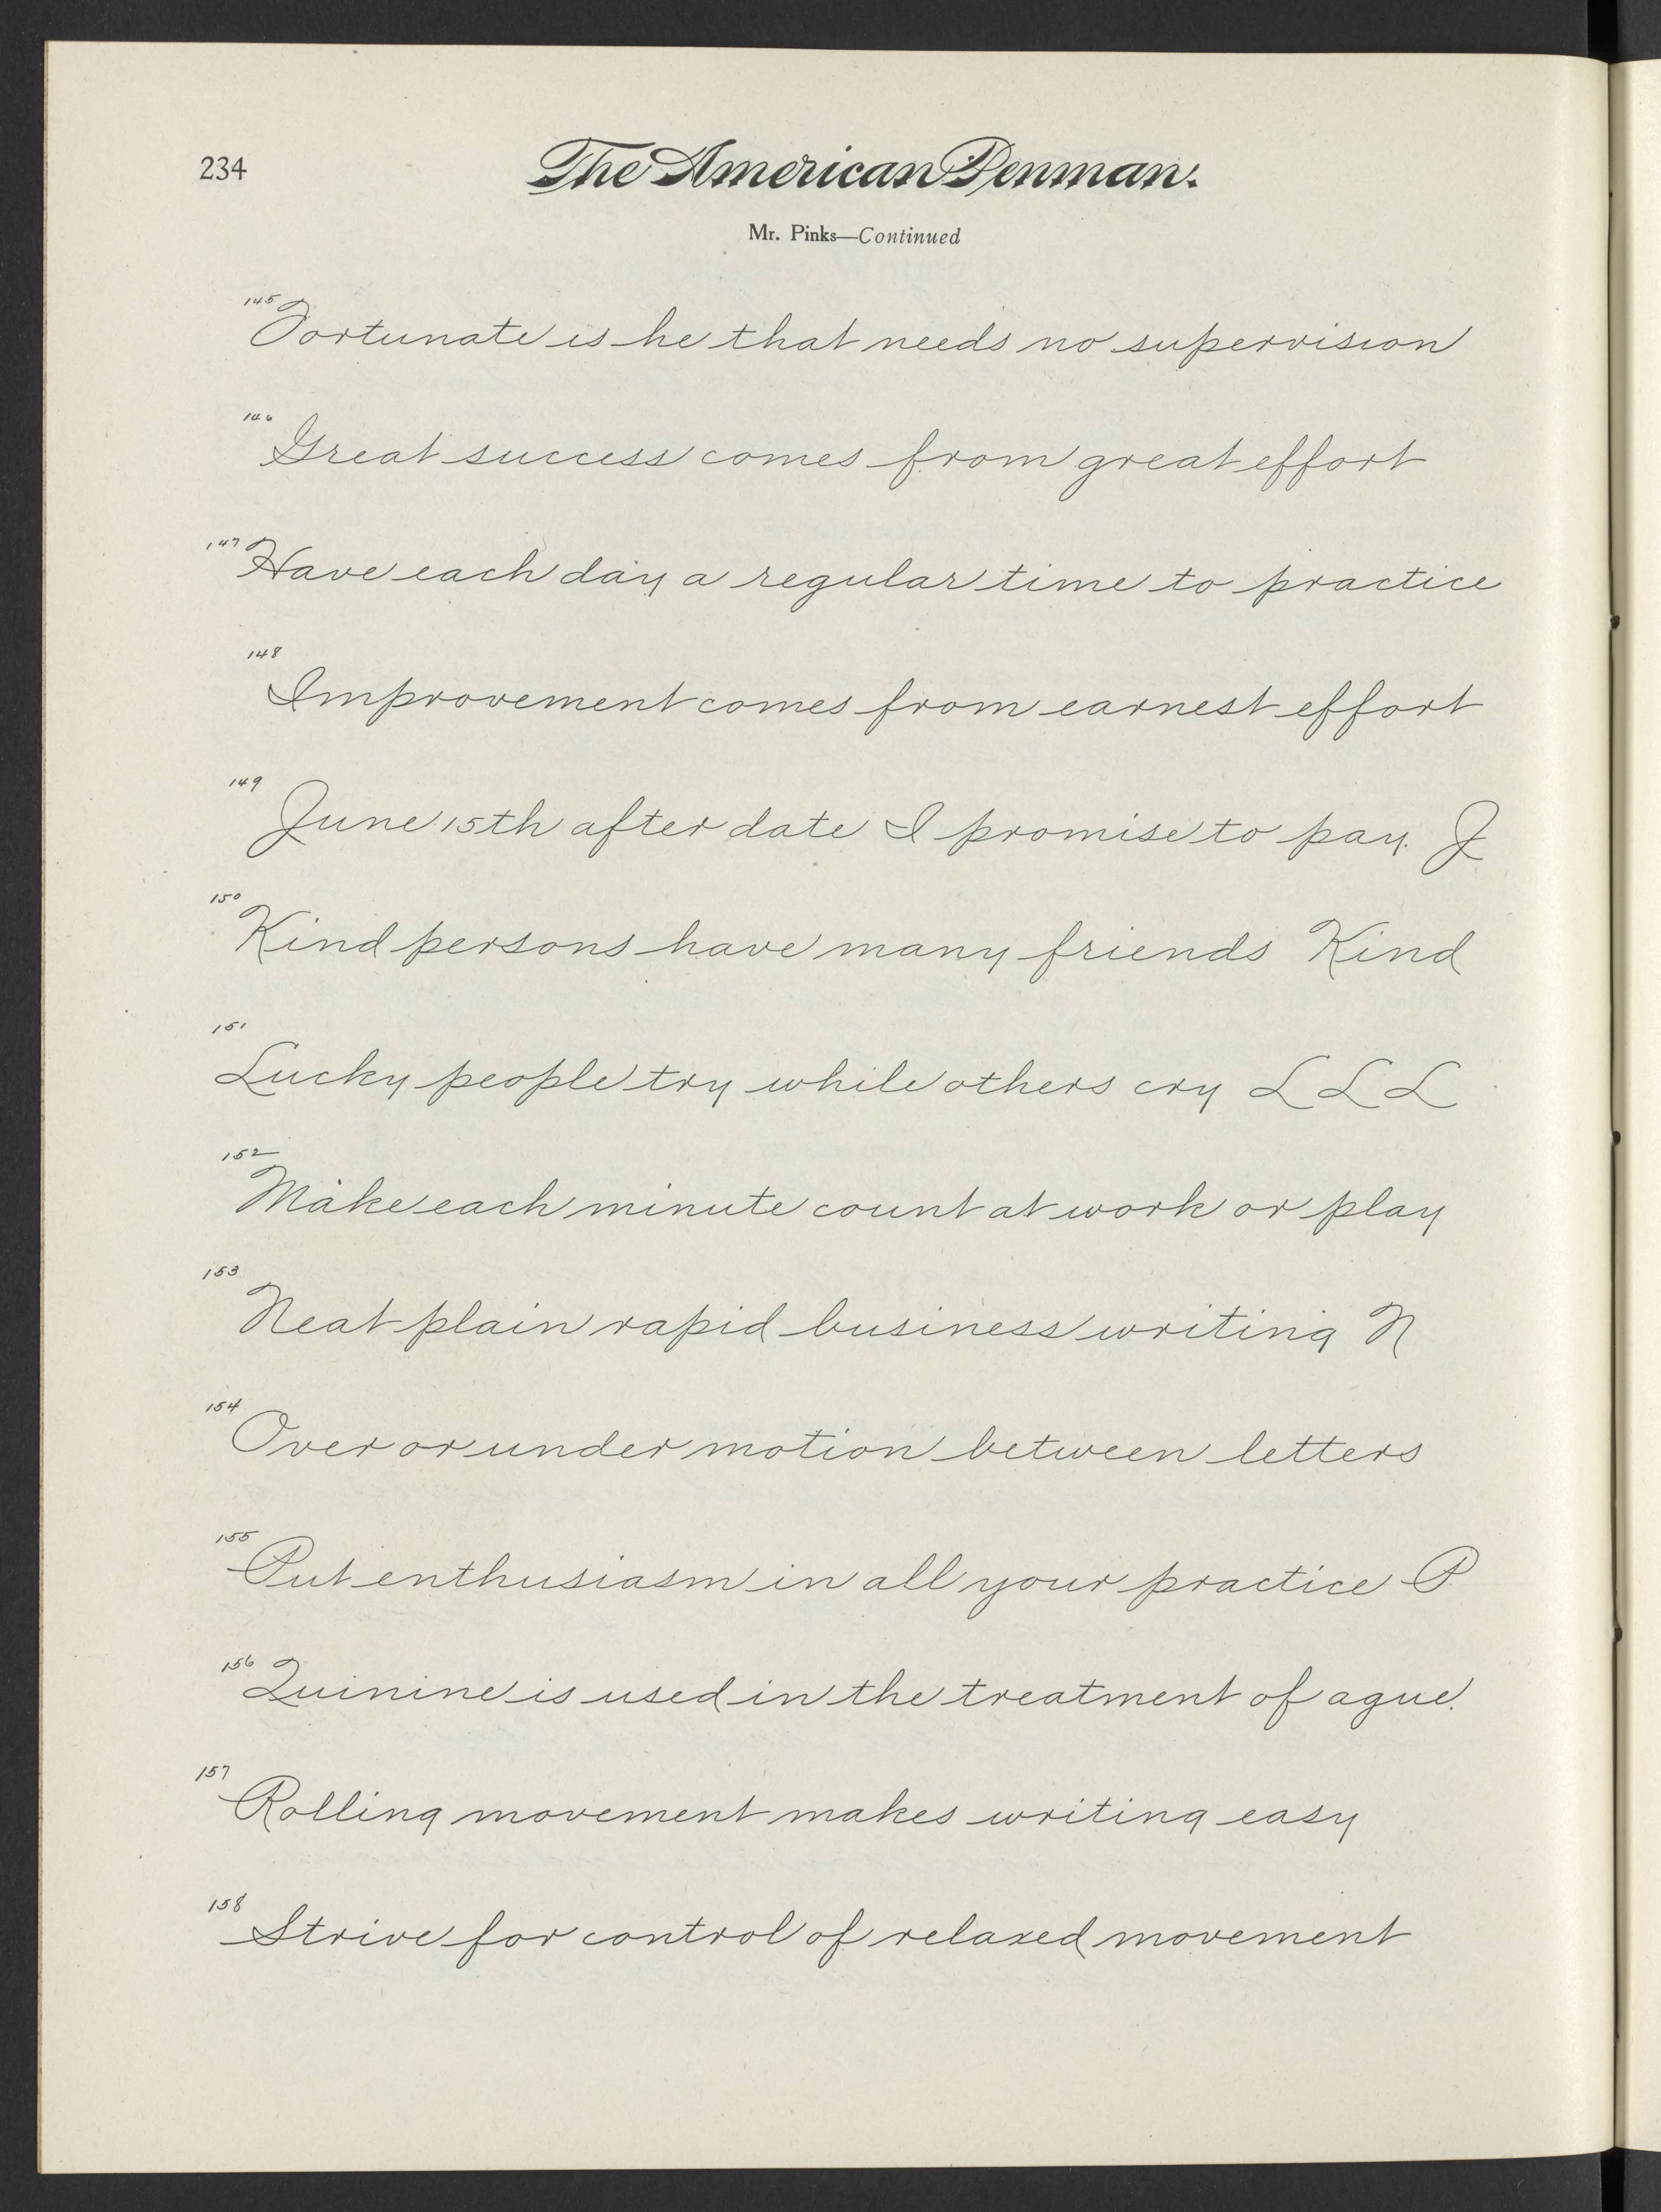 234
The American Penman.
Mr. Pinks—Continued
145
Fortunate is he that needs no supervision
146
Great success comes from great effort
147
Have each day a regular time to practice
148
Improvement comes from earnest effort
149
June 15th after date I promise to pay. J
150
Kind persons have many friends Kind
151
Lucky people try while others cry L L L
152
Make each minute count at work or play
153
Neat plain rapid business writing N
154
Over or under motion between letters
155
Put enthusiasm in all your practice P
156
Quinine is used in the treatment of ague.
157
Rolling movement makes writing easy
158
Strive for control of relaxed movement